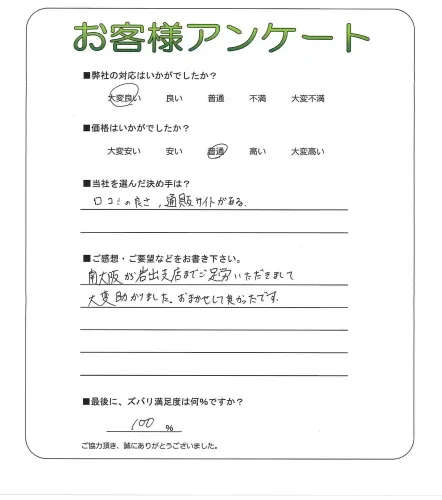 お客様アンケート
■弊社の対応はいかがでしたか?
大変良い 良い 普通 不満 大変不満
■価格はいかがでしたか?
大変安い 安い 普通 高い 大変高い
■当社を選んだ決め手は?
口コミの良さ,通販サイトがある.
■ご感想・ご要望などをお書き下さい。
南大阪から岩出支店までご足労いただきまして
大変助かりました。おまかせして良かったです.
■最後に、ズバリ満足度は何%ですか?
100 %
ご協力頂き、誠にありがとうございました。